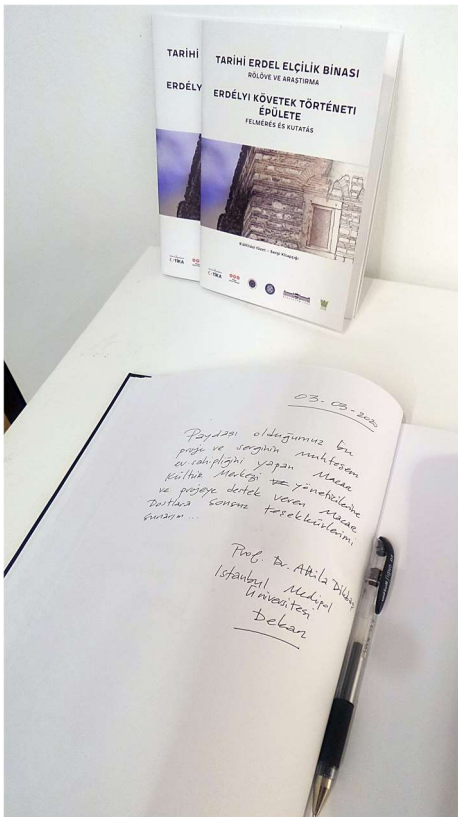 TARİHİ
ERDÉLY
TARİHİ ERDEL ELÇİLİK BİNASI
RÖLÖVE VE ARAŞTIRMA
ERDÉLYI KÖVETEK TÖRTÉNETI
ÉPÜLETE
FELMÉRÉS ÉS KUTATÁS
Kültürel Miras - Sergi Kitapçığı
TİKA
TİKA
03-03-2020
Paydaşı olduğumuz bu
proje ve serginin muhteşem
ev sahipliğini yapan Macar
Kültür Merkezi yöneticilerine
ve projeye destek veren Macar
Dostlara sonsuz teşekkürlerimi
sunarım...
Prof. Dr. Attila Dikbaş
Istanbul Medipol
Üniversitesi
Dekan